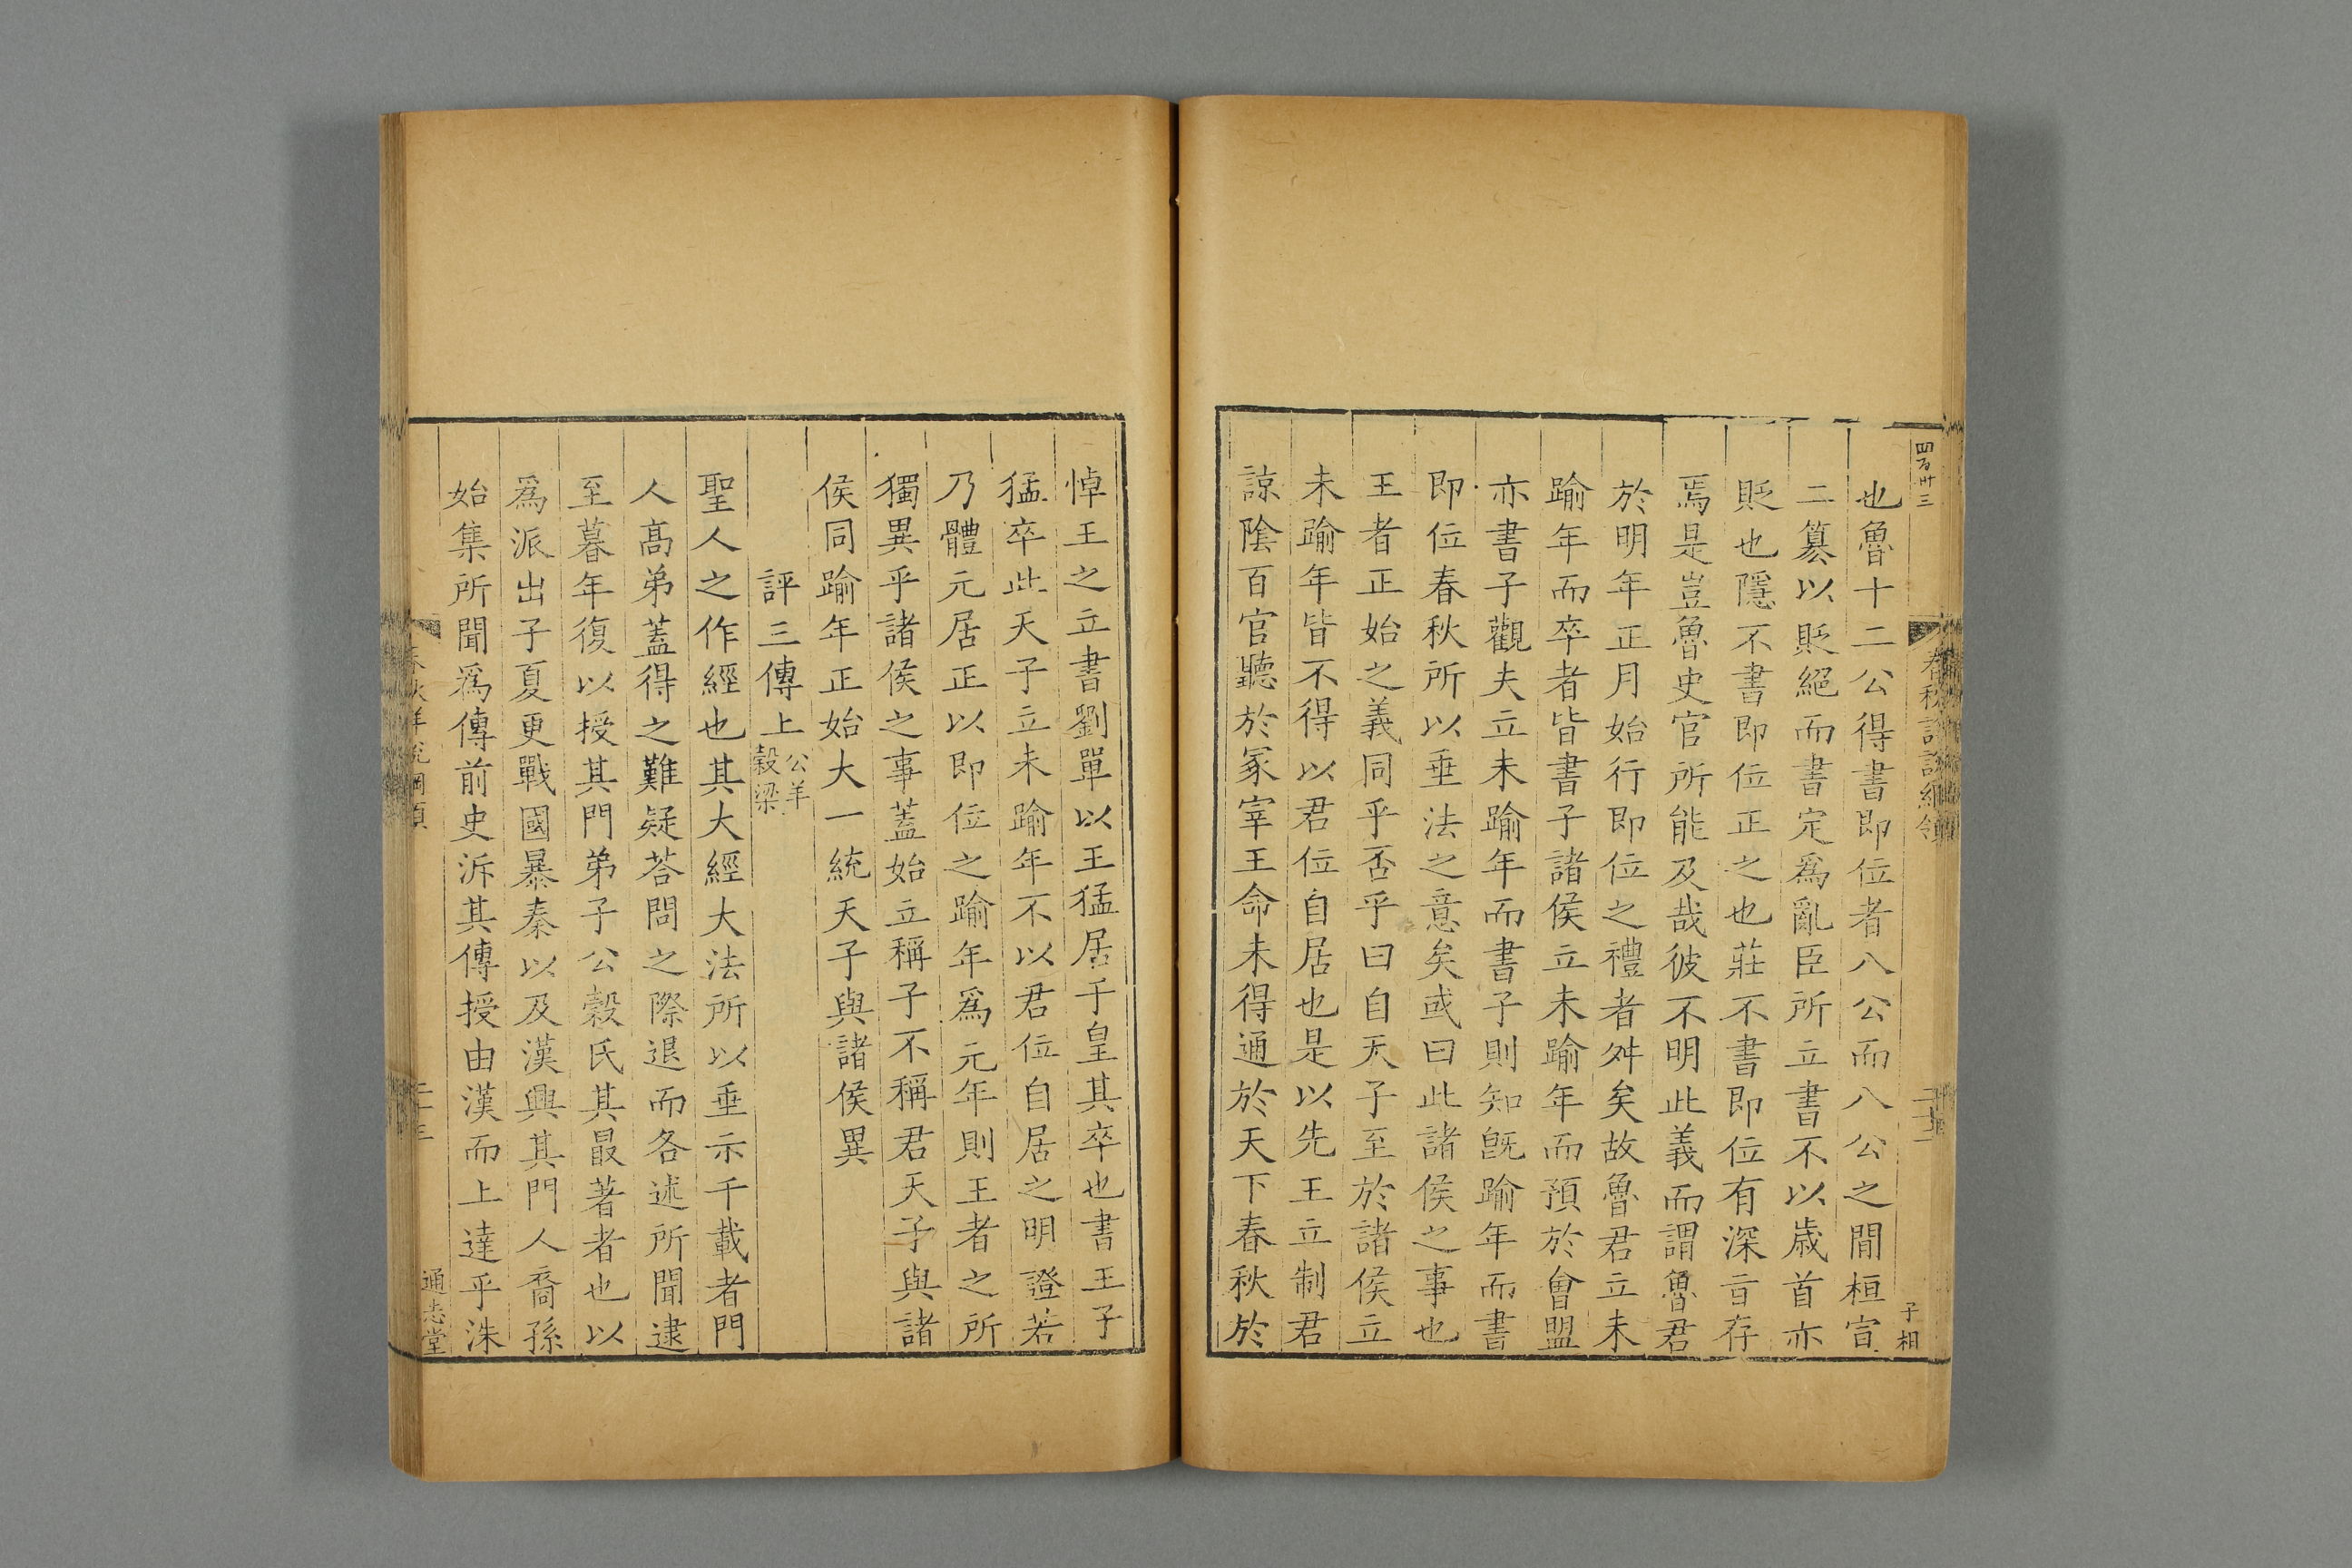 四百卅三
春秋詳說綱領
子相
也魯十二公得書即位者八公而八公之間桓宣
二篡以貶絕而書定爲亂臣所立書不以歳首亦
貶也隱不書即位正之也莊不書即位有深㫖存
焉是豈魯史官所能及哉彼不明此義而謂魯君
於明年正月始行即位之禮者舛矣故魯君立未
踰年而卒者皆書子諸侯立未踰年而預於會盟
亦書子觀夫立未踰年而書子則知旣踰年而書
即位春秋所以垂法之意矣或曰此諸侯之事也
王者正始之義同乎否乎曰自天子至於諸侯立
未踰年皆不得以君位自居也是以先王立制君
諒陰百官聽於冢宰王命未得通於天下春秋於
悼王之立書劉單以王猛居于皇其卒也書王子
猛卒此天子立未踰年不以君位自居之明證若
乃體元居正以即位之踰年爲元年則王者之所
獨異乎諸侯之事蓋始立稱子不稱君天子與諸
侯同踰年正始大一統天子與諸侯異
評三傳上公羊穀梁
聖人之作經也其大經大法所以垂示千載者門
人髙弟蓋得之難疑荅問之際退而各述所聞逮
至暮年復以授其門弟子公穀氏其最著者也以
爲派出子夏更戰國暴秦以及漢興其門人裔孫
始集所聞爲傳前史泝其傳授由漢而上達乎洙
春秋詳說綱領
二十三
通志堂